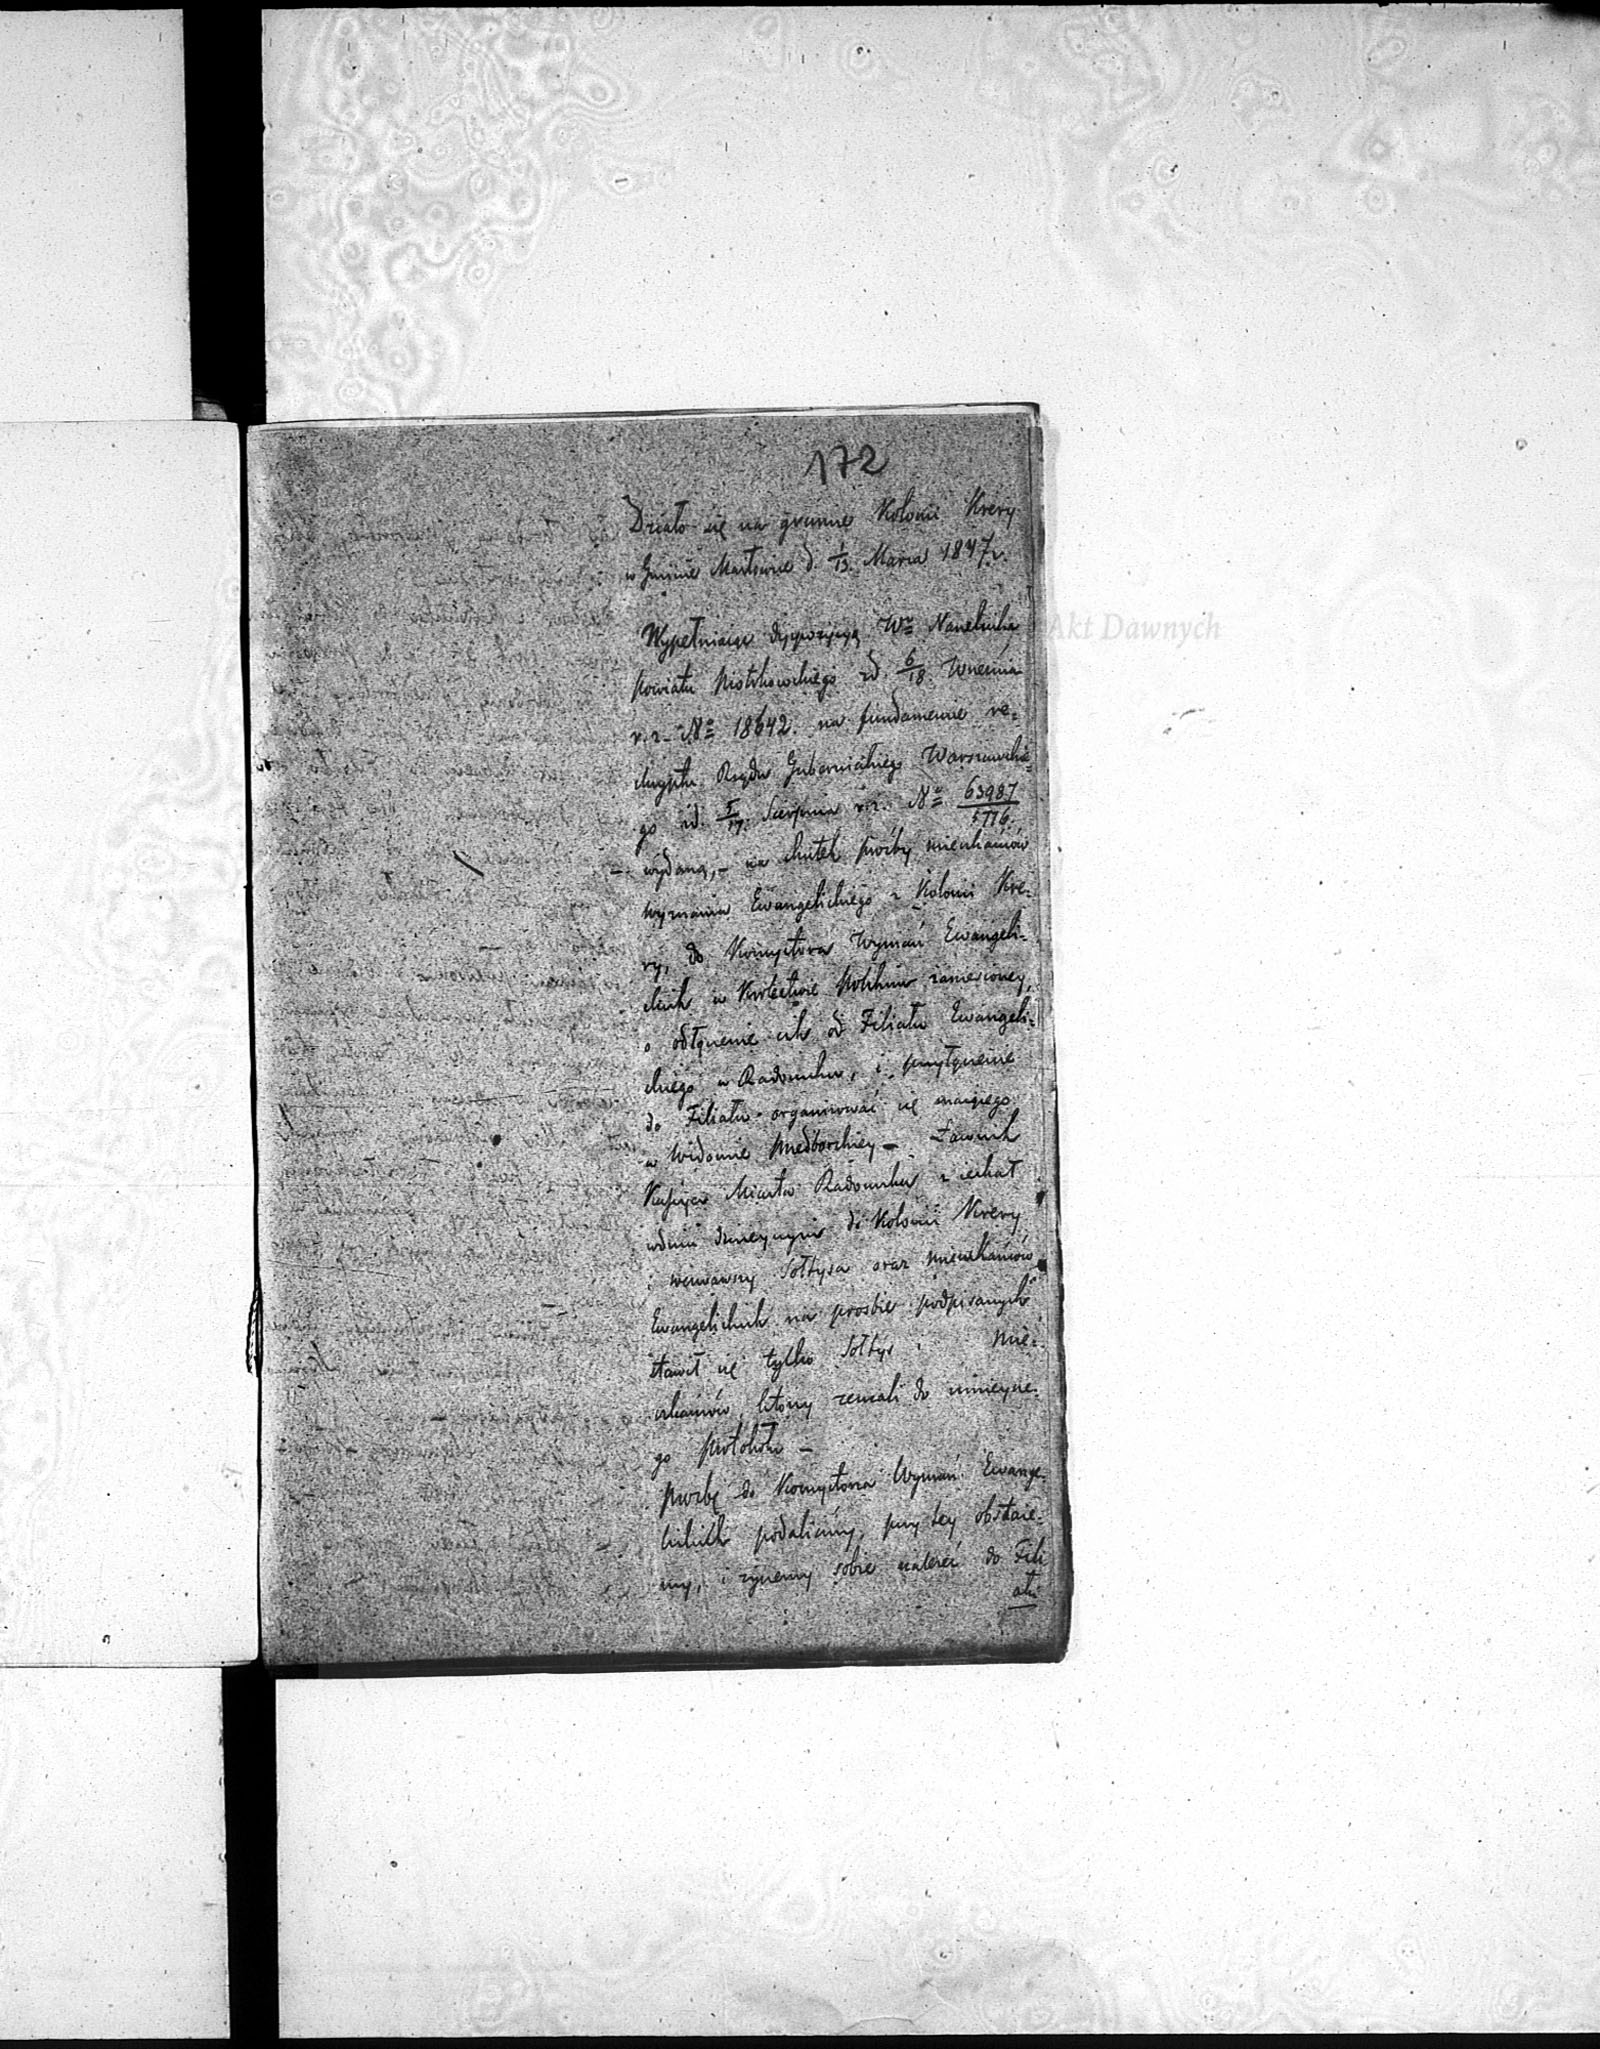 172
Działo się na gruncie Kolonii Krery
w Gminie Masłowie d. 1/13. Marca 1847 r.
Wypełniaiąc dyspozycyą Wo Naczelnika
powiatu Piotrkowskiego z d. 6/18 Wrzesnia
r.z. No 18642. na fundamencie re=
skryptu Rządu Gubernialnego Warszawskie=
go z d. 5/17. Sierpnia r.z. No 63987/5776.
wydaną, – na skutek prośby mieszkańców
wyznania Ewangelickiego z Kolonii Kre=
ry, do Konsystorza Wyznań Ewangeli=
ckich w Krolestwie Polskim zaniesioney,
o odłączenie ich od Filiału Ewangeli=
ckiego w Radomsku, i przyłączenie
do Filiału organizować się maiącego
w Widomie Przedborskiey – Ławnik
Kassyer Miasta Radomska z iechał
w dniu dzisieyszym do Kolonii Krery
i wezwawszy Sołtysa oraz mieszkańców
Ewangelickich na prosbie podpisanych
stawił się tylko Sołtys i mie=
szkańców, którzy zeznali do ninieysze=
go Protokołu –
Prosbę do Konsystorza Wyznań Ewange
lickich podaliśmy, przy tey obstaie=
my, i życzemy sobie należeć do Fili
ału
Akt Dawnych